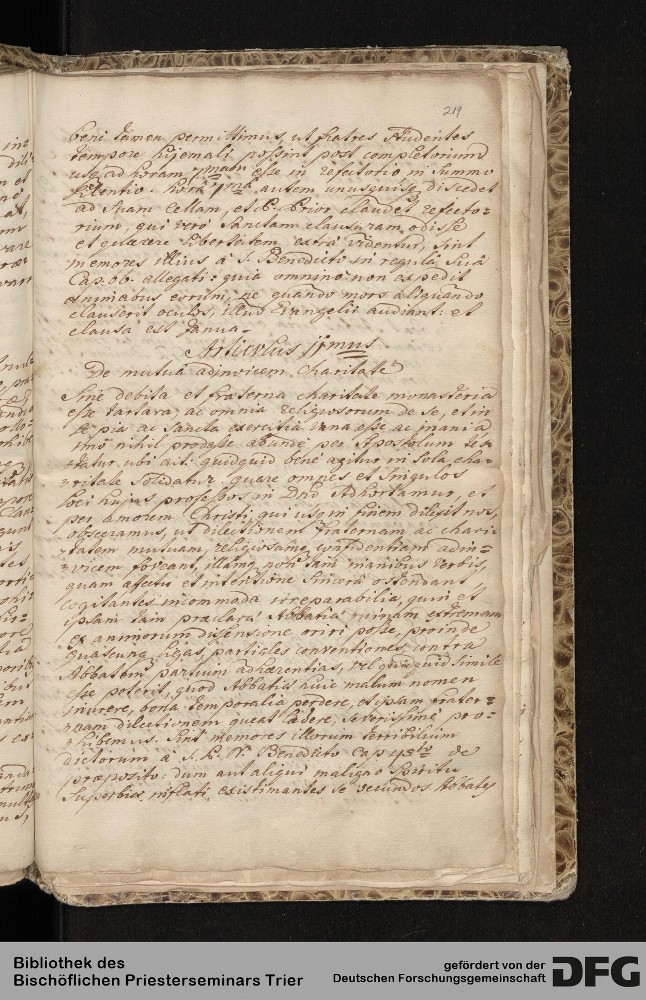 219
beni tamen permittimus, ut fratres studentes
tempore hijemali possint post completorium
usq ad horam 7mam esse in refectorio in summo
silentio. hora autem unusquisq discedet
ad suam Cellam, et P. Prior claudet refecto=
rium, qui verò sanctam clausuram odisse
et quaerere libertatem extra videntur, sint
memores illius à S. Benedicto in regulâ suâ
Cap. 66. allegati: quia omnino non expedit
animabus eorum, ne quando mors aliquando
clauserit oculos, illud Evangelii audiant: et
clausa est Janua.
Articulus mus
De mutuâ adinvicem Charitate
Sine debita et fraterna charitate monasteria
esse tartara, ac omnia religiosorum de se, et in
se pia ac sancta exercitia vana esse ac inania
imò nihil prodesse abunde per Apostolum tes
tatur ubi ait: quidquid bene agitur in sola cha=
ritate solidatur. quare omnes et singulos
loci hujus professos in Dno adhortamur, et
per amorem Christi, qui usq in finem dilexit nos,
obsecramus, ut dilectionem fraternam ac chari
tatem mutuam, religiosamq confidentiam adin=
vicem foveant, illamq non tam manibus verbis,
quam affectu et intentione sincera ostendant,
Cogitantes incommoda irreparabilia, quin et
ipsam tam praeclarae Abbatiae ruinam extremam
ex animorum disensione oriri posse, proinde
quascunq ligas, partiales conventiones, contra
Abbatem partium adhaerentias, vel quidquid simile
esse poterit, quod Abbatiae huic malum nomen
inurere, bona temporalia perdere, et ipsam frater=
nam dilectionem queat laedere, severissimè pro=
hibemus. Sint memores illorum terribilium
dictorum à S. P. N. Benedicto Cap de
praeposito: dum aut aliqui maligno Spiritu
Superbiae inflati, existimantes se secundos Abbates
Bibliothek des
Bischöflichen Priesterseminars Trier
gefördert von der
Deutschen Forschungsgemeinschaft
DFG